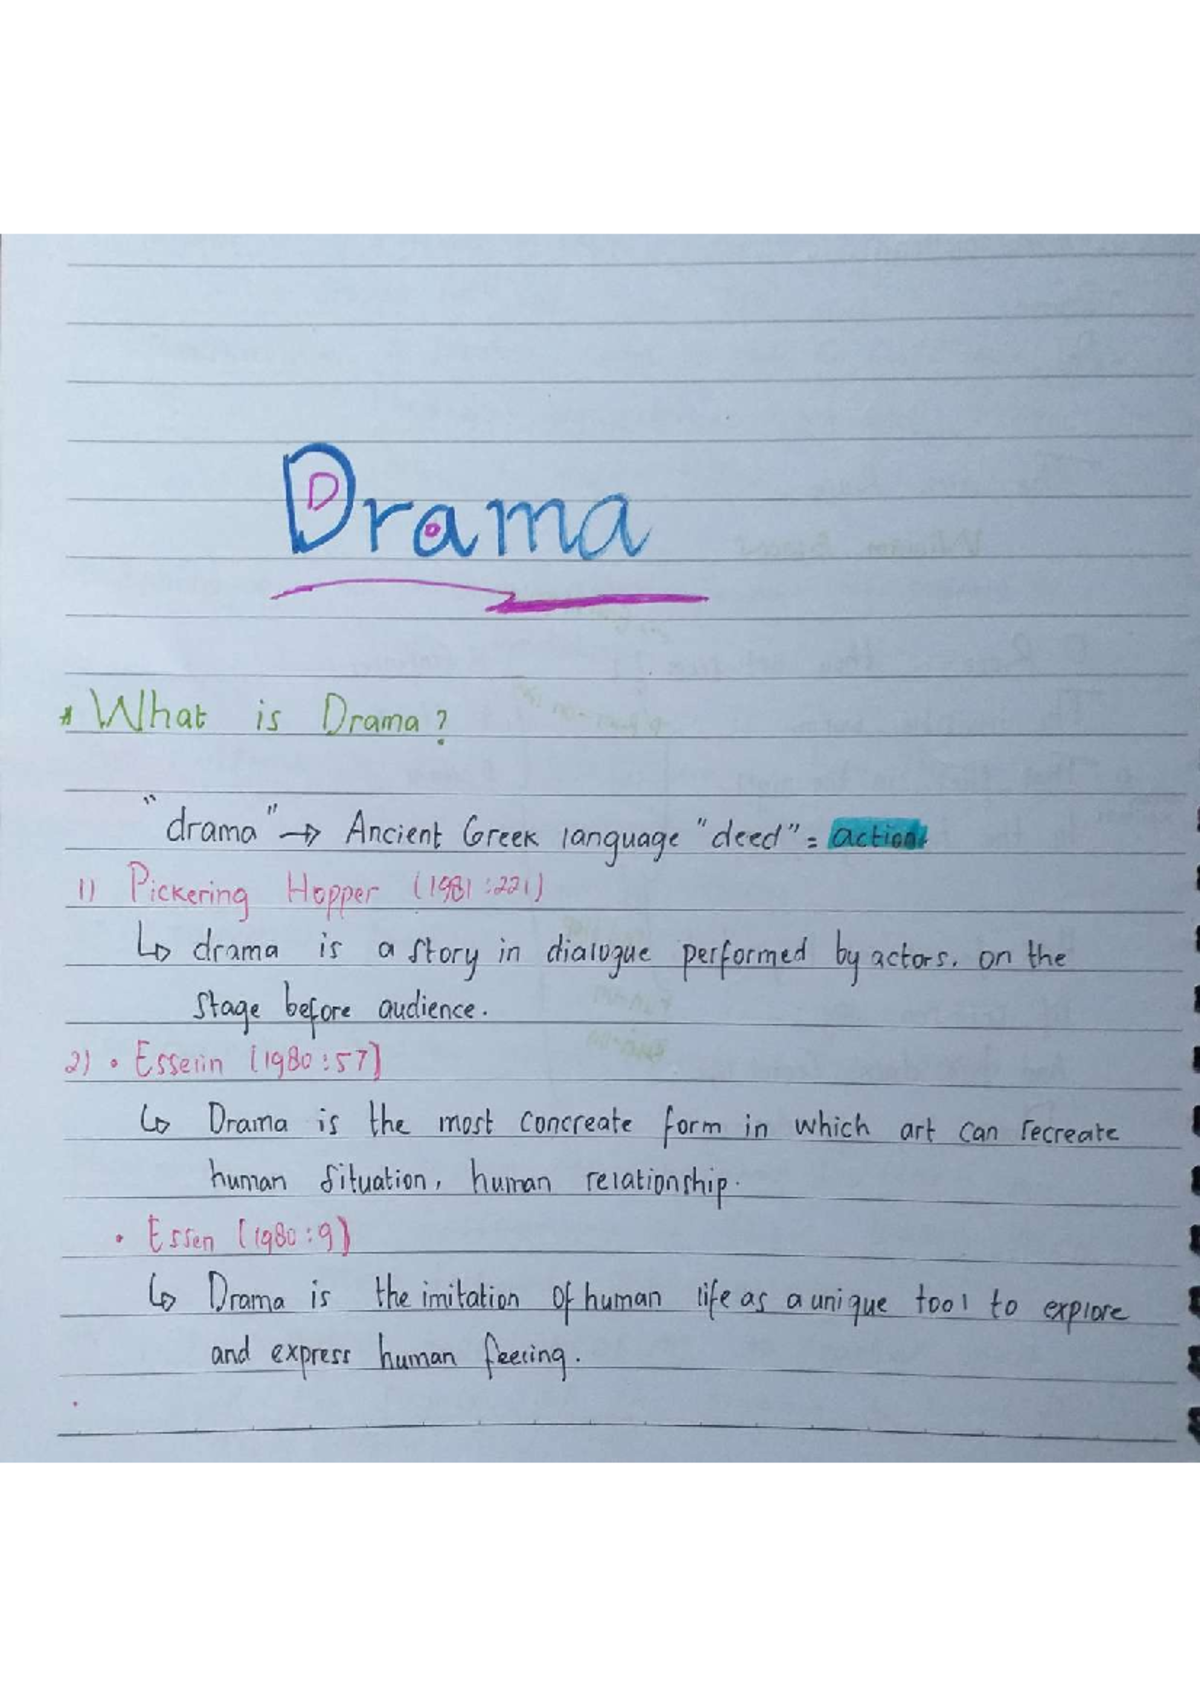 Drama
* What is Drama?
"drama" → Ancient Greek language "deed" = action.
1) Pickering Hopper (1981:221)
↳ drama is a story in dialogue performed by actors. on the
stage before audience.
2) • Esserin [1980:57]
↳ Drama is the most concreate form in which art can recreate
human situation, human relationship.
• Essen [1980:9]
↳ Drama is the imitation of human life as a unique tool to explore
and express human feeling.